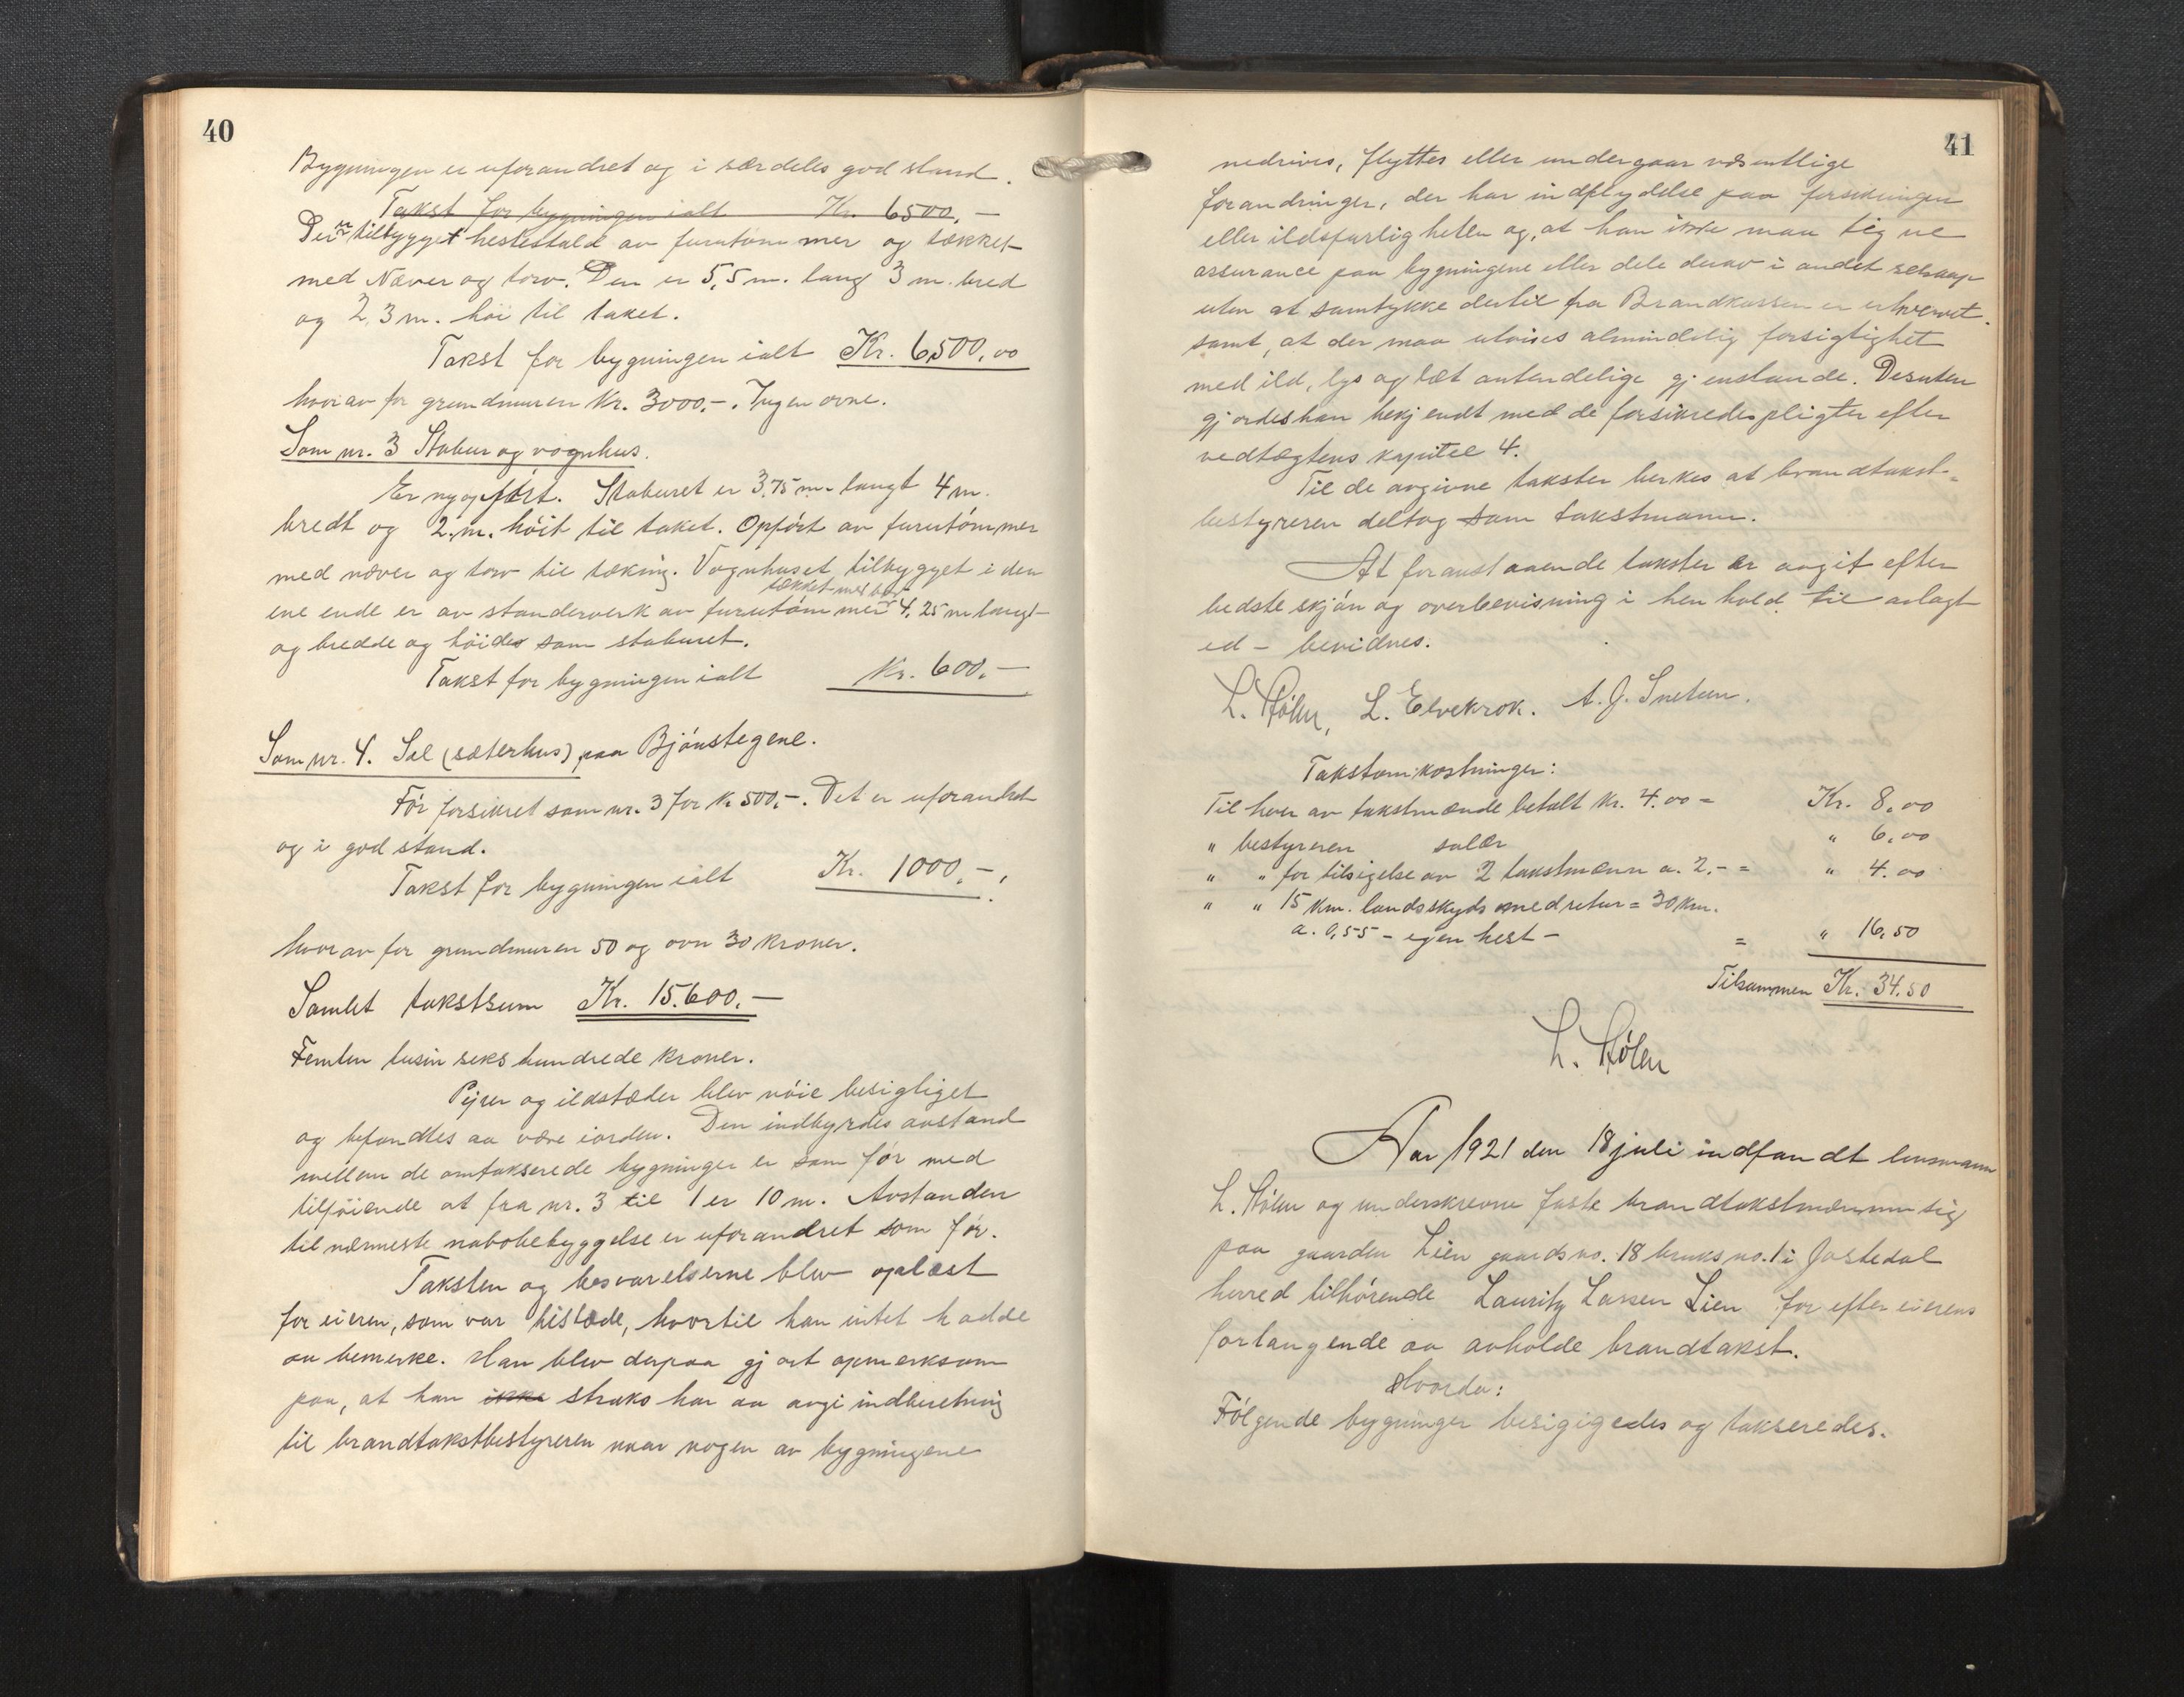 40
Bygningen er uforandret og i særdeles god stand.
Takst for bygningen ialt Kr. 6500.-
Der er tilbygget hestestald av furutømmer og tækket
med Næver og torv. Den er 5,5 m. lang 3 m. bred
og 2,3 m. høi til taket.
Takst for bygningen ialt Kr. 6500,00
hvorav for grundmuren Kr. 3000.-. Ingen ovne.
Som nr. 3 Stabur og vognhus.
Er nyopført. Staburet er 3,75 m. langt 4 m.
bredt og 2. m. høit til taket. Opført av furutømmer
med næver og torv til tæking. Vognhuset tilbygget i den
tækket med
ene ende er av standerverk av furutømmer 4,25 m langt
og bredde og høide som staburet.
Takst for bygningen ialt Kr. 600.-
Som nr. 4. Sel (sæterhus) paa Bjønstegene.
Før forsikret som nr. 3 for Kr 500,-. Det er uforandret
og i god stand.
Takst for bygningen ialt Kr. 1000.-.
hvorav for grundmuren 50 og ovn 30 kroner.
Samlet takstsum Kr. 15.600.-
Femten tusin seks hundrede kroner.
Pejser og ildstæder blev nøie besigtiget
og befandtes aa være iorden. Den indbyrdes avstand
mellem de omtakserede bygninger er som før med
tilføiende at fra nr. 3 til 1 er 10 m. Avstanden
til nærmeste nabobebyggelse er uforandret som før.
Taksten og besvarelserne blev oplæst
for eieren, som var tilstede, hvortil han intet hadde
aa bemerke. Han blev derpaa gjort opmerksom
paa, at han ikke straks har aa avgi indberetning
til brandtakstbestyreren naar nogen av bygningene
41
nedrives, flyttes eller undergaar væsentlige
forandringer, der har indflydelse paa forsikringen
eller ildsfarligheten og, at han ikke maa tegne
assurance paa bygningene eller dele derav i andet selskap
uten at samtykke dertil fra Brandkassen er erhvervet.
samt, at der maa utvises almindelig forsigtighet
med ild, lys og læt antendelige gjenstande. Desuten
gjordes han bekjendt med de forsikredes pligter efter
vedtægtens kapitel 4.
Til de avgivne takster berkes at brandtakst-
bestyreren deltog som takstmann.
At foranstaaende takster er avgit efter
bedste skjøn og overbevisning i henhold til avlagt
ed - bevidnes.
L. Hølen, L. Elvekrok. A. J. Snetun.
Takstomkostninger:
Til hver av takstmænde betalt Kr. 4.00 = Kr. 8,00
" bestyreren salær " 6,00
" " for tilsigelse av 2 takstmænn a. 2.- = " 4.00
" " 15 Km. landsskyds med retur = 30 Km.
a. 0,55 - egen hest - = " 16,50
Tilsammen Kr. 34.50
L. Hølen
Aar 1921 den 18 juli indfandt lensmann
L. Hølen og underskrevne faste brandtakstmænn sig
paa gaarden Lien gaards no. 18 bruks no. 1 i Jostedal
herred tilhørende Lauritz Larsen Lien for efter eierens
forlangende aa avholde brandtakst.
Hvorda:
Følgende bygninger besigigedes og takseredes.